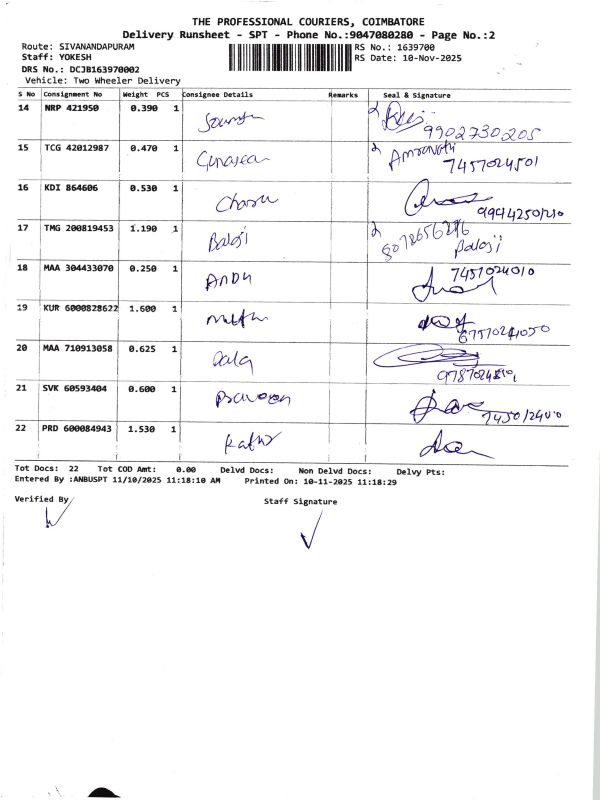 THE PROFESSIONAL COURIERS, COIMBATORE
Delivery Runsheet - SPT - Phone No.:9047080280 - Page No.:2
Route: SIVANANDAPURAM RS No.: 1639700
Staff: YOKESH RS Date: 10-Nov-2025
DRS No.: DCJB163970002
Vehicle: Two Wheeler Delivery
S No Consignment No Weight PCS Consignee Details Remarks Seal & Signature
14 NRP 421950 0.390 1
9902730205
15 TCG 42012987 0.470 1 Amravathi
7457024501
16 KDI 864606 0.530 1 Charu
17 TMG 200819453 1.190 1 Balaji 8072656276 Balaji
18 MAA 304433070 0.250 1 ANDU 7457024010
19 KUR 6000828622 1.600 1
20 MAA 710913058 0.625 1
21 SVK 60593404 0.600 1 Praveen
22 PRD 600084943 1.530 1
Tot Docs: 22 Tot COD Amt: 0.00 Delvd Docs: Non Delvd Docs: Delvy Pts:
Entered By :ANBUSPT 11/10/2025 11:18:10 AM Printed On: 10-11-2025 11:18:29
Verified By Staff Signature